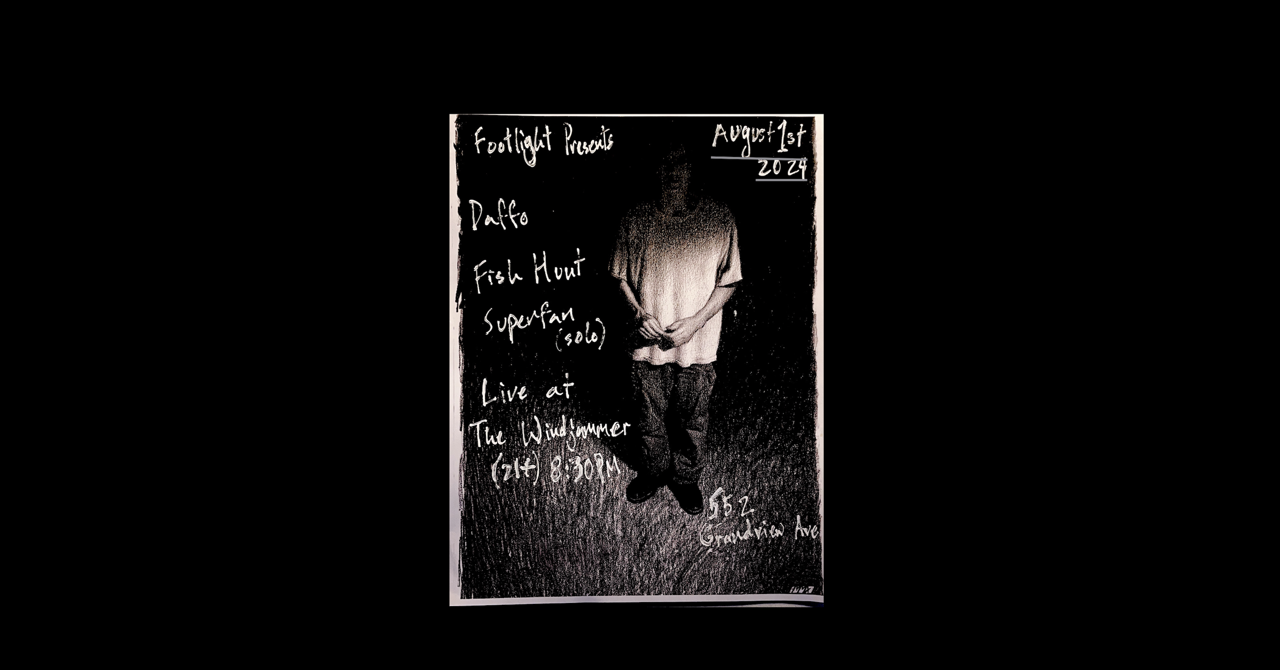 Footlight Presents
August 1st
2024
Daffo
Fish Hunt
Superfan
(solo)
Live at
The Windjammer
(21+) 8:30PM
552
Grandview Ave